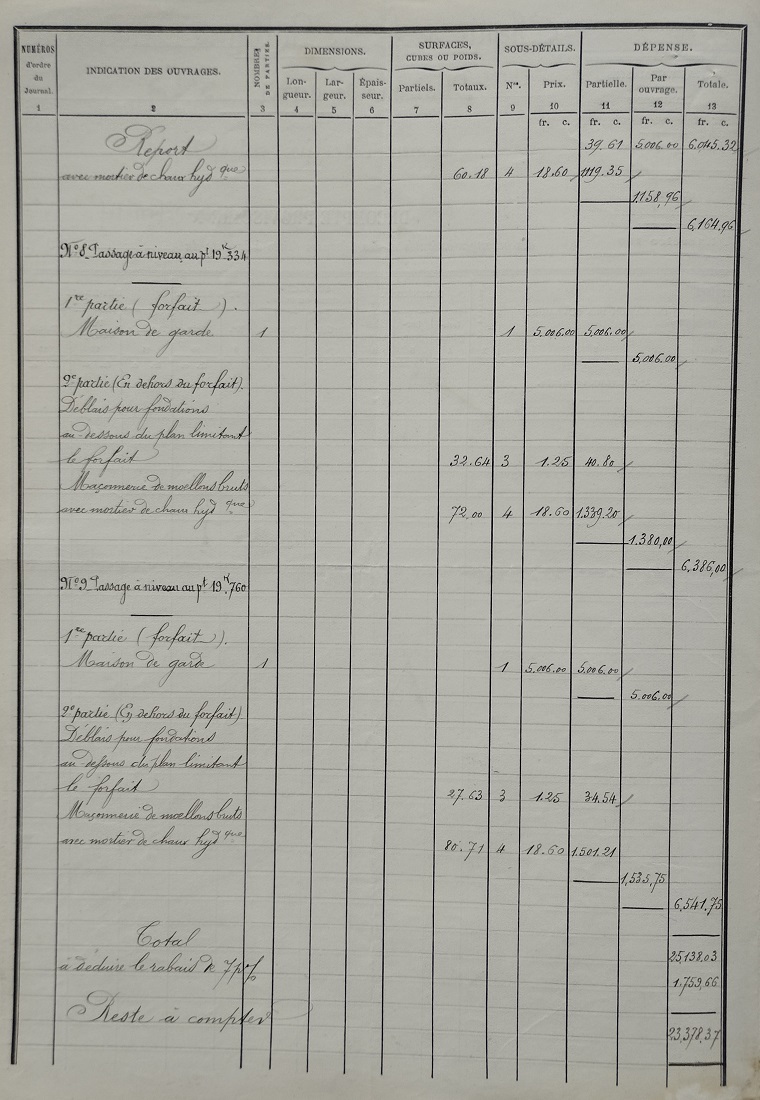 NUMÉROS d'ordre du Journal. INDICATION DES OUVRAGES. NOMBRES DE PARTIES. DIMENSIONS. SURFACES, CUBES OU POIDS. SOUS-DÉTAILS. DÉPENSE.
Lon-gueur. Lar-geur. Épais-seur. Partiels. Totaux. Nos. Prix. Partielle. Par ouvrage. Totale.
1 2 3 4 5 6 7 8 9 10 11 12 13
fr. c. fr. c. fr. c. fr. c.
Report 39.61 5.006.00 6.045.32
avec mortier de chaux hydque 60.18 4 18.60 1119.35
1.158,96
6,164.96
No 8_Passage à niveau au pt 19K.334
1re partie ( forfait ).
Maison de garde 1 1 5.006.00 5.006.00
5.006.00
2e partie (En dehors du forfait).
Déblais pour fondations
au-dessous du plan limitant
le forfait 32.64 3 1.25 40.80
Maçonnerie de moellons bruts
avec mortier de chaux hydque 72.00 4 18.60 1.339.20
1.380,00
6,386,00
No 9_Passage à niveau au pt 19K.760
1re partie ( forfait ).
Maison de garde 1 1 5.006.00 5.006.00
5.006.00
2e partie (En dehors du forfait)
Déblais pour fondations
au dessous du plan limitant
le forfait 27.63 3 1.25 34.54
Maçonnerie de moellons bruts
avec mortier de chaux hydque 80.71 4 18.60 1.501.21
1,535,75
6,541.75
Total 25,138.03
à déduire le rabais de 7 p% 1.759,66
Reste à compter 23,378.37